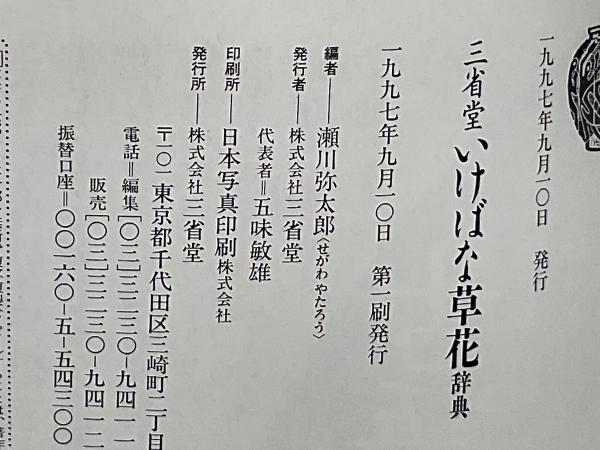 一九九七年九月一〇日 発行
三省堂 いけばな草花辞典
一九九七年九月一〇日 第一刷発行
編者――瀬川弥太郎〈せがわやたろう〉
発行者――株式会社三省堂
代表者=五味敏雄
印刷所――日本写真印刷株式会社
発行所――株式会社三省堂
〒一〇一 東京都千代田区三崎町二丁目
電話=編集[〇三]三二三〇-九四一一
販売[〇三]三二三〇-九四一二
振替口座=〇〇一六〇-五-五四三〇〇